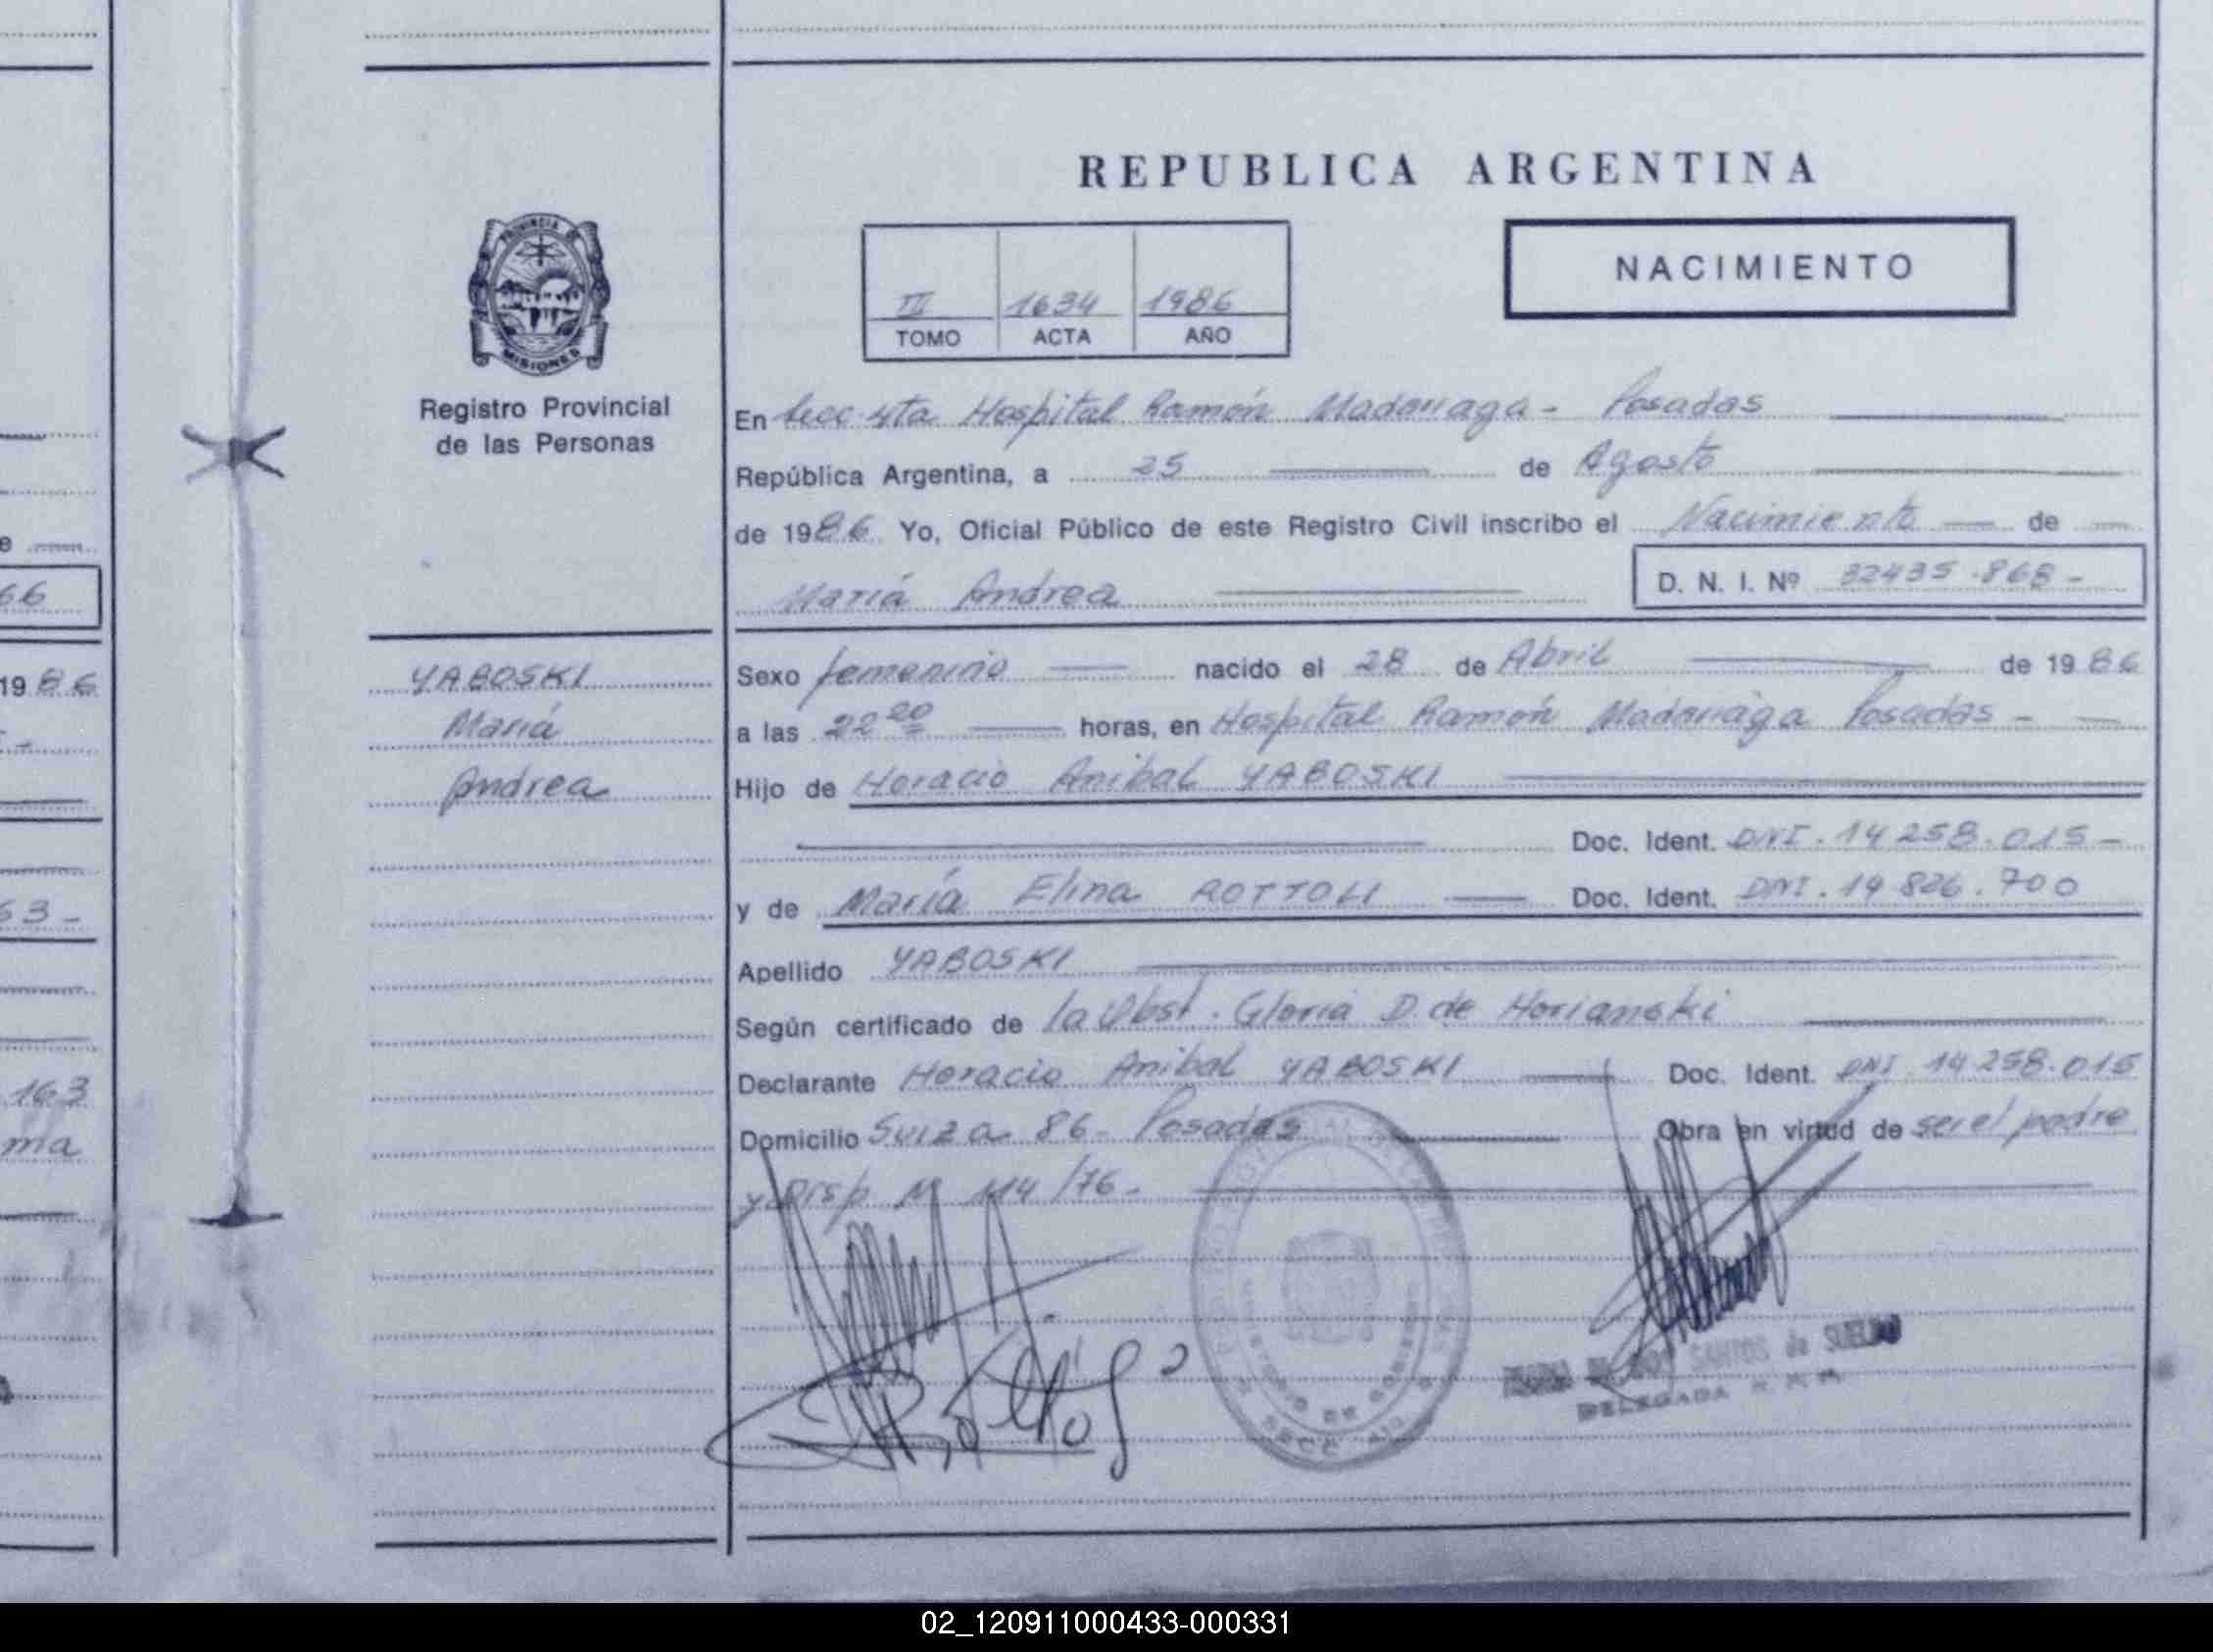 REPUBLICA ARGENTINA
NACIMIENTO
III 1634 1986
TOMO ACTA AÑO
PROVINCIA DE
MISIONES
Registro Provincial
de las Personas
En Secc. 4ta Hospital Ramón Madariaga - Posadas
República Argentina, a 25 de Agosto
de 1986 Yo, Oficial Público de este Registro Civil inscribo el Nacimiento de
María Andrea
D. N. I. Nº 32435.868-
YABOSKI
María
Andrea
Sexo femenino nacido el 28 de Abril de 1986
a las 22 20 horas, en Hospital Ramón Madariaga Posadas -
Hijo de Horacio Anibal YABOSKI
Doc. Ident. DNI. 14 258.015-
y de María Elina ROTTOLI Doc. Ident. DNI. 14 826.700
Apellido YABOSKI
Según certificado de la Obst. Gloria D. de Horianski
Declarante Horacio Anibal YABOSKI Doc. Ident. DNI 14 258.015
Domicilio Suiza 86 - Posadas Obra en virtud de ser el padre
y Disp. Nº 114/76-
SANTOS de
DELEGADA
66
1986
63-
163
ma
02_120911000433-000331